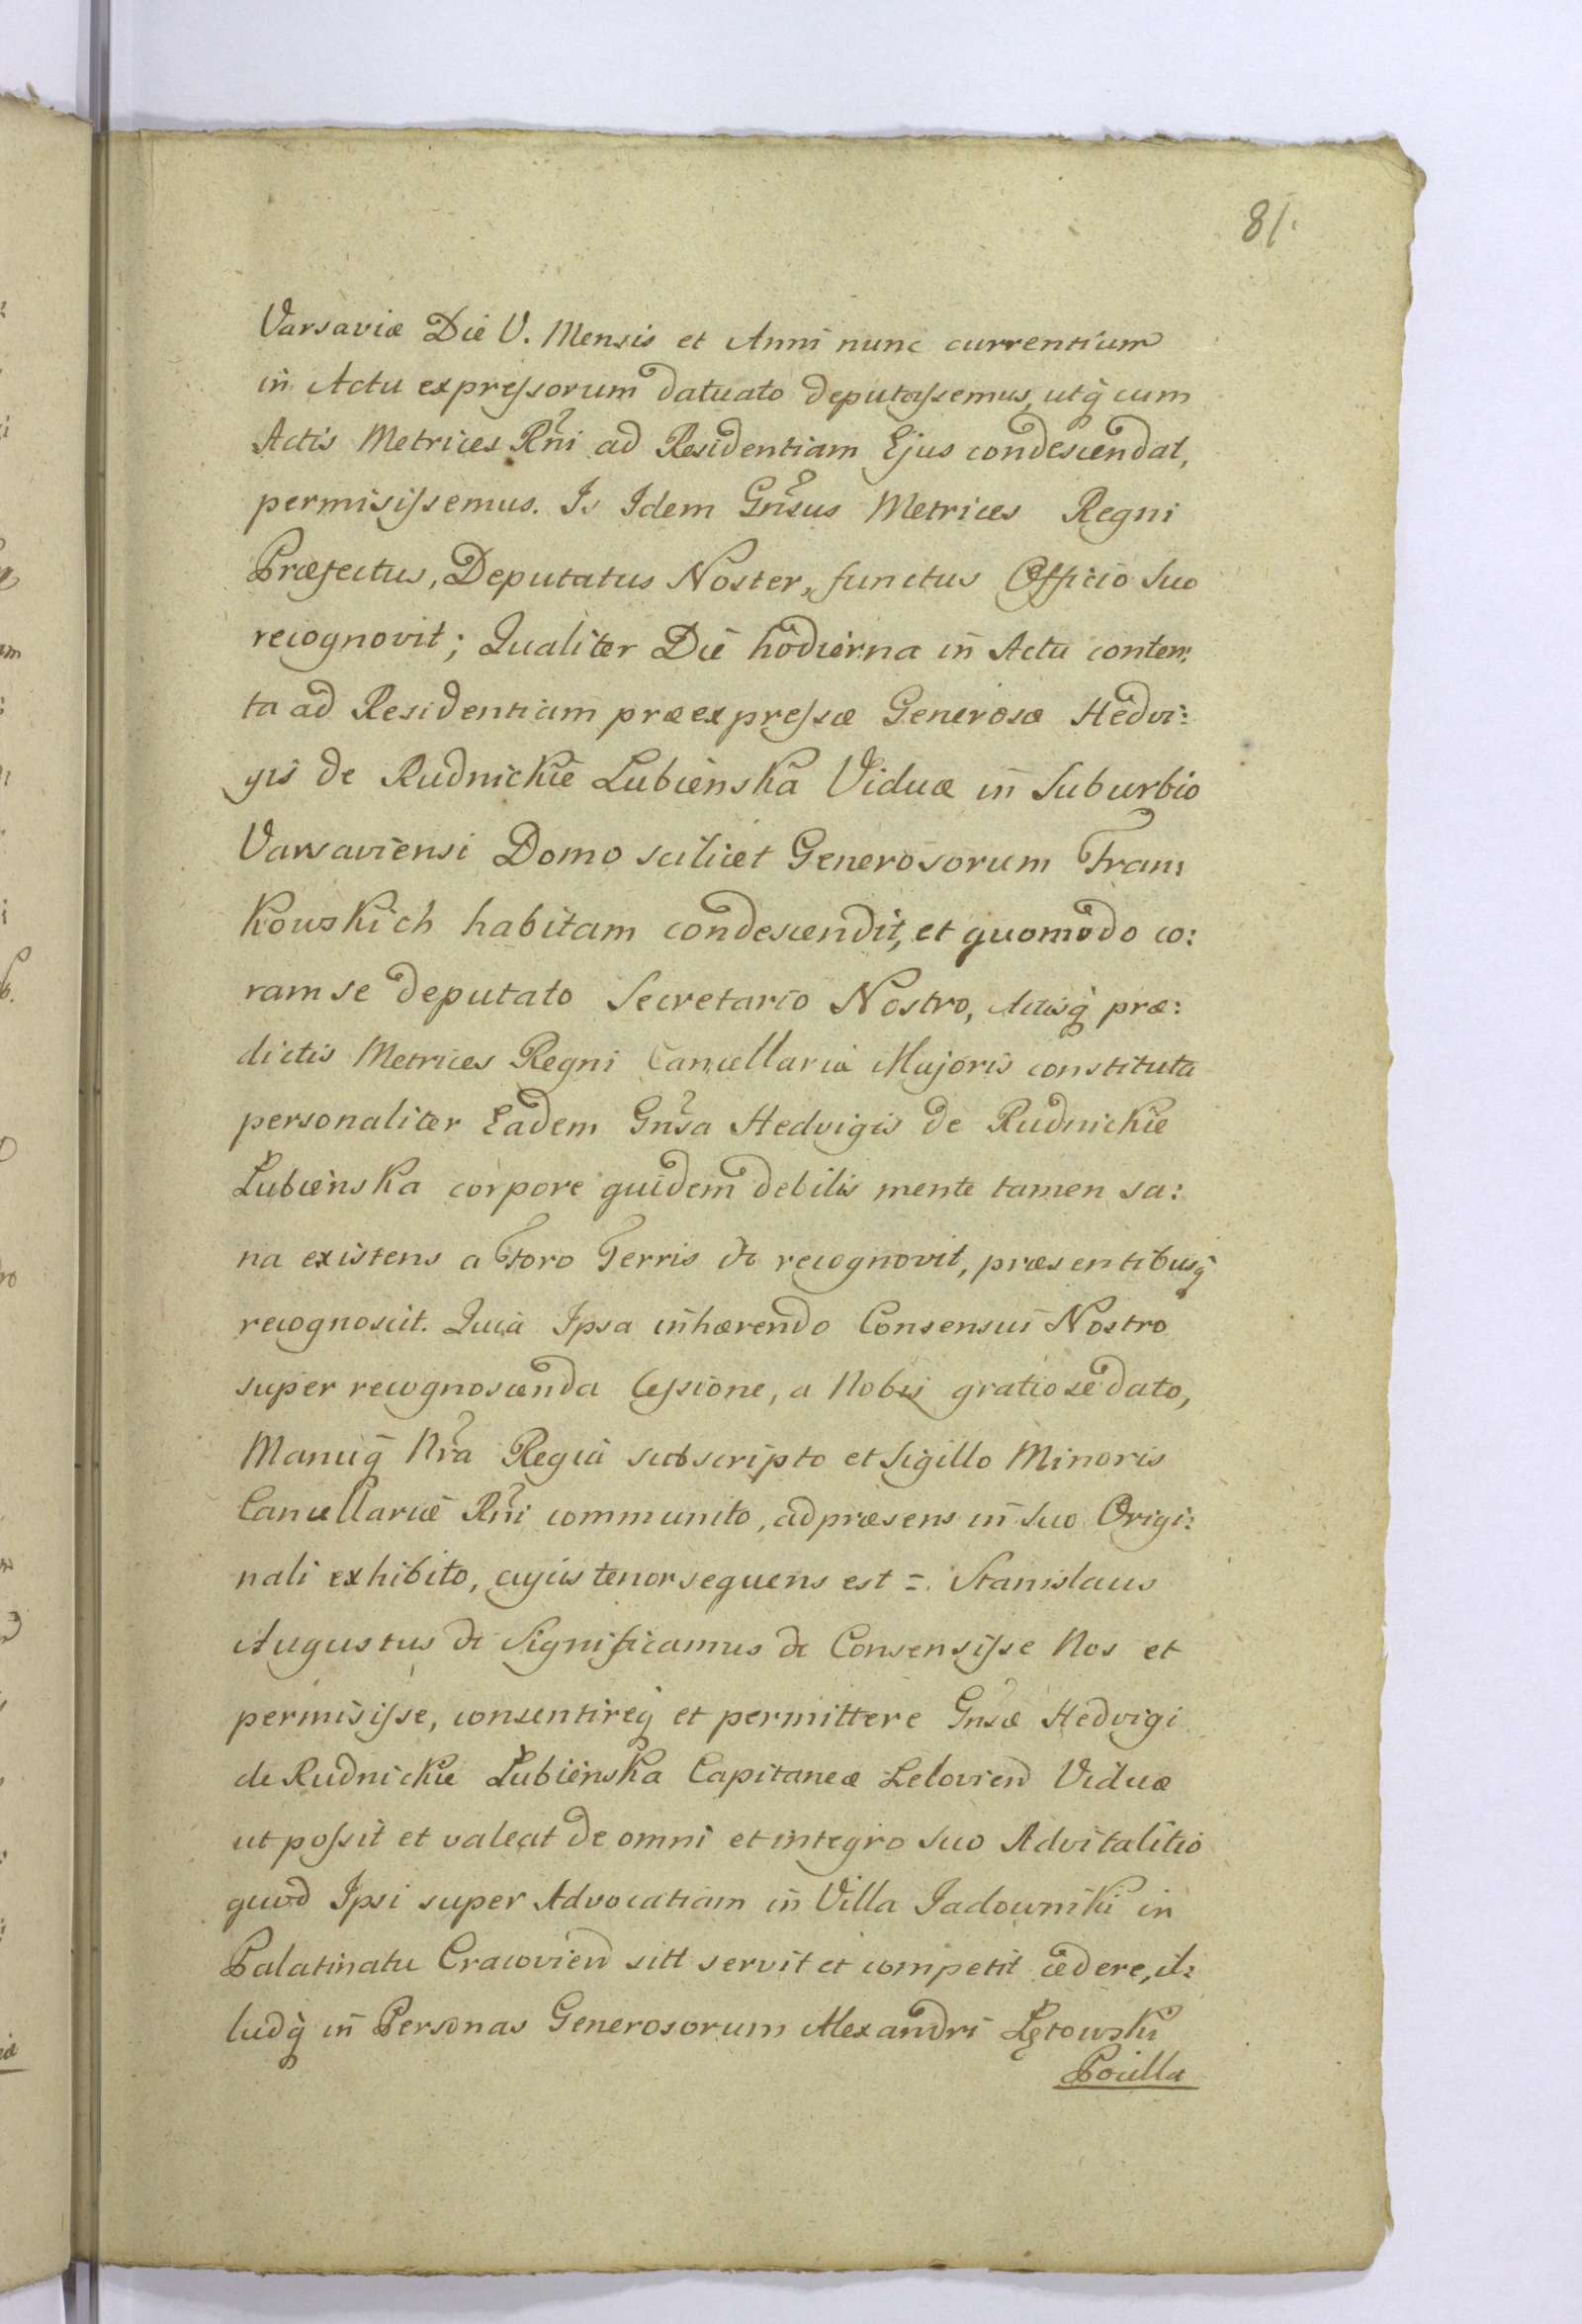 81.
Varsaviæ Die V. Mensis et Anni nunc currentium
in Actu expressorum datuato deputassemus, utq̃ cum
Actis Metrices Rñi ad Residentiam Ejus condescendat,
permisissemus. Is Idem Gñsus Metrices Regni
Præfectus, Deputatus Noster, functus Officio Suo
recognovit; Qualiter Die hodierna in Actu conten:
ta ad Residentiam præexpressæ Generosæ Hedvi:
gis de Rudnickie Łubienska Viduæ in Suburbio
Varsaviensi Domo scilicet Generosorum Fran:
kowskich habitam condescendit, et quomodo co:
ram se deputato Secretario Nostro, Actisq̃ præ:
dictis Metrices Regni Cancellariæ Majoris constituta
personaliter Eadem Gñsa Hedvigis de Rudnickie
Łubienska corpore quidem debilis mente tamen sa:
na existens a Foro Terris &c recognovit, præsentibusq̃
recognoscit. Quia Ipsa inhærendo Consensui Nostro
super recognoscenda Cessione, a Nobis gratiose dato,
Manuq̃ Nr̃a Regia subscripto et Sigillo Minoris
Cancellariæ Rñi communito, ad præsens in Suo Origi:
nali exhibito, cujus tenor sequens est =. Stanislaus
Augustus &c Significamus &c Consensisse Nos et
permisisse, consentireq̃ et permittere Gñsæ Hedvigi
de Rudnickie Łubienska Capitaneæ Lelovien Viduæ
ut possit et valeat de omni et integro suo Advitalitio
quod Ipsi super Advocatiam in Villa Jadowniki in
Palatinatu Cracovien sitt servit et competit cedere, il:
ludq̃ in Personas Generosorum Alexandri Łętowski
Pocilla